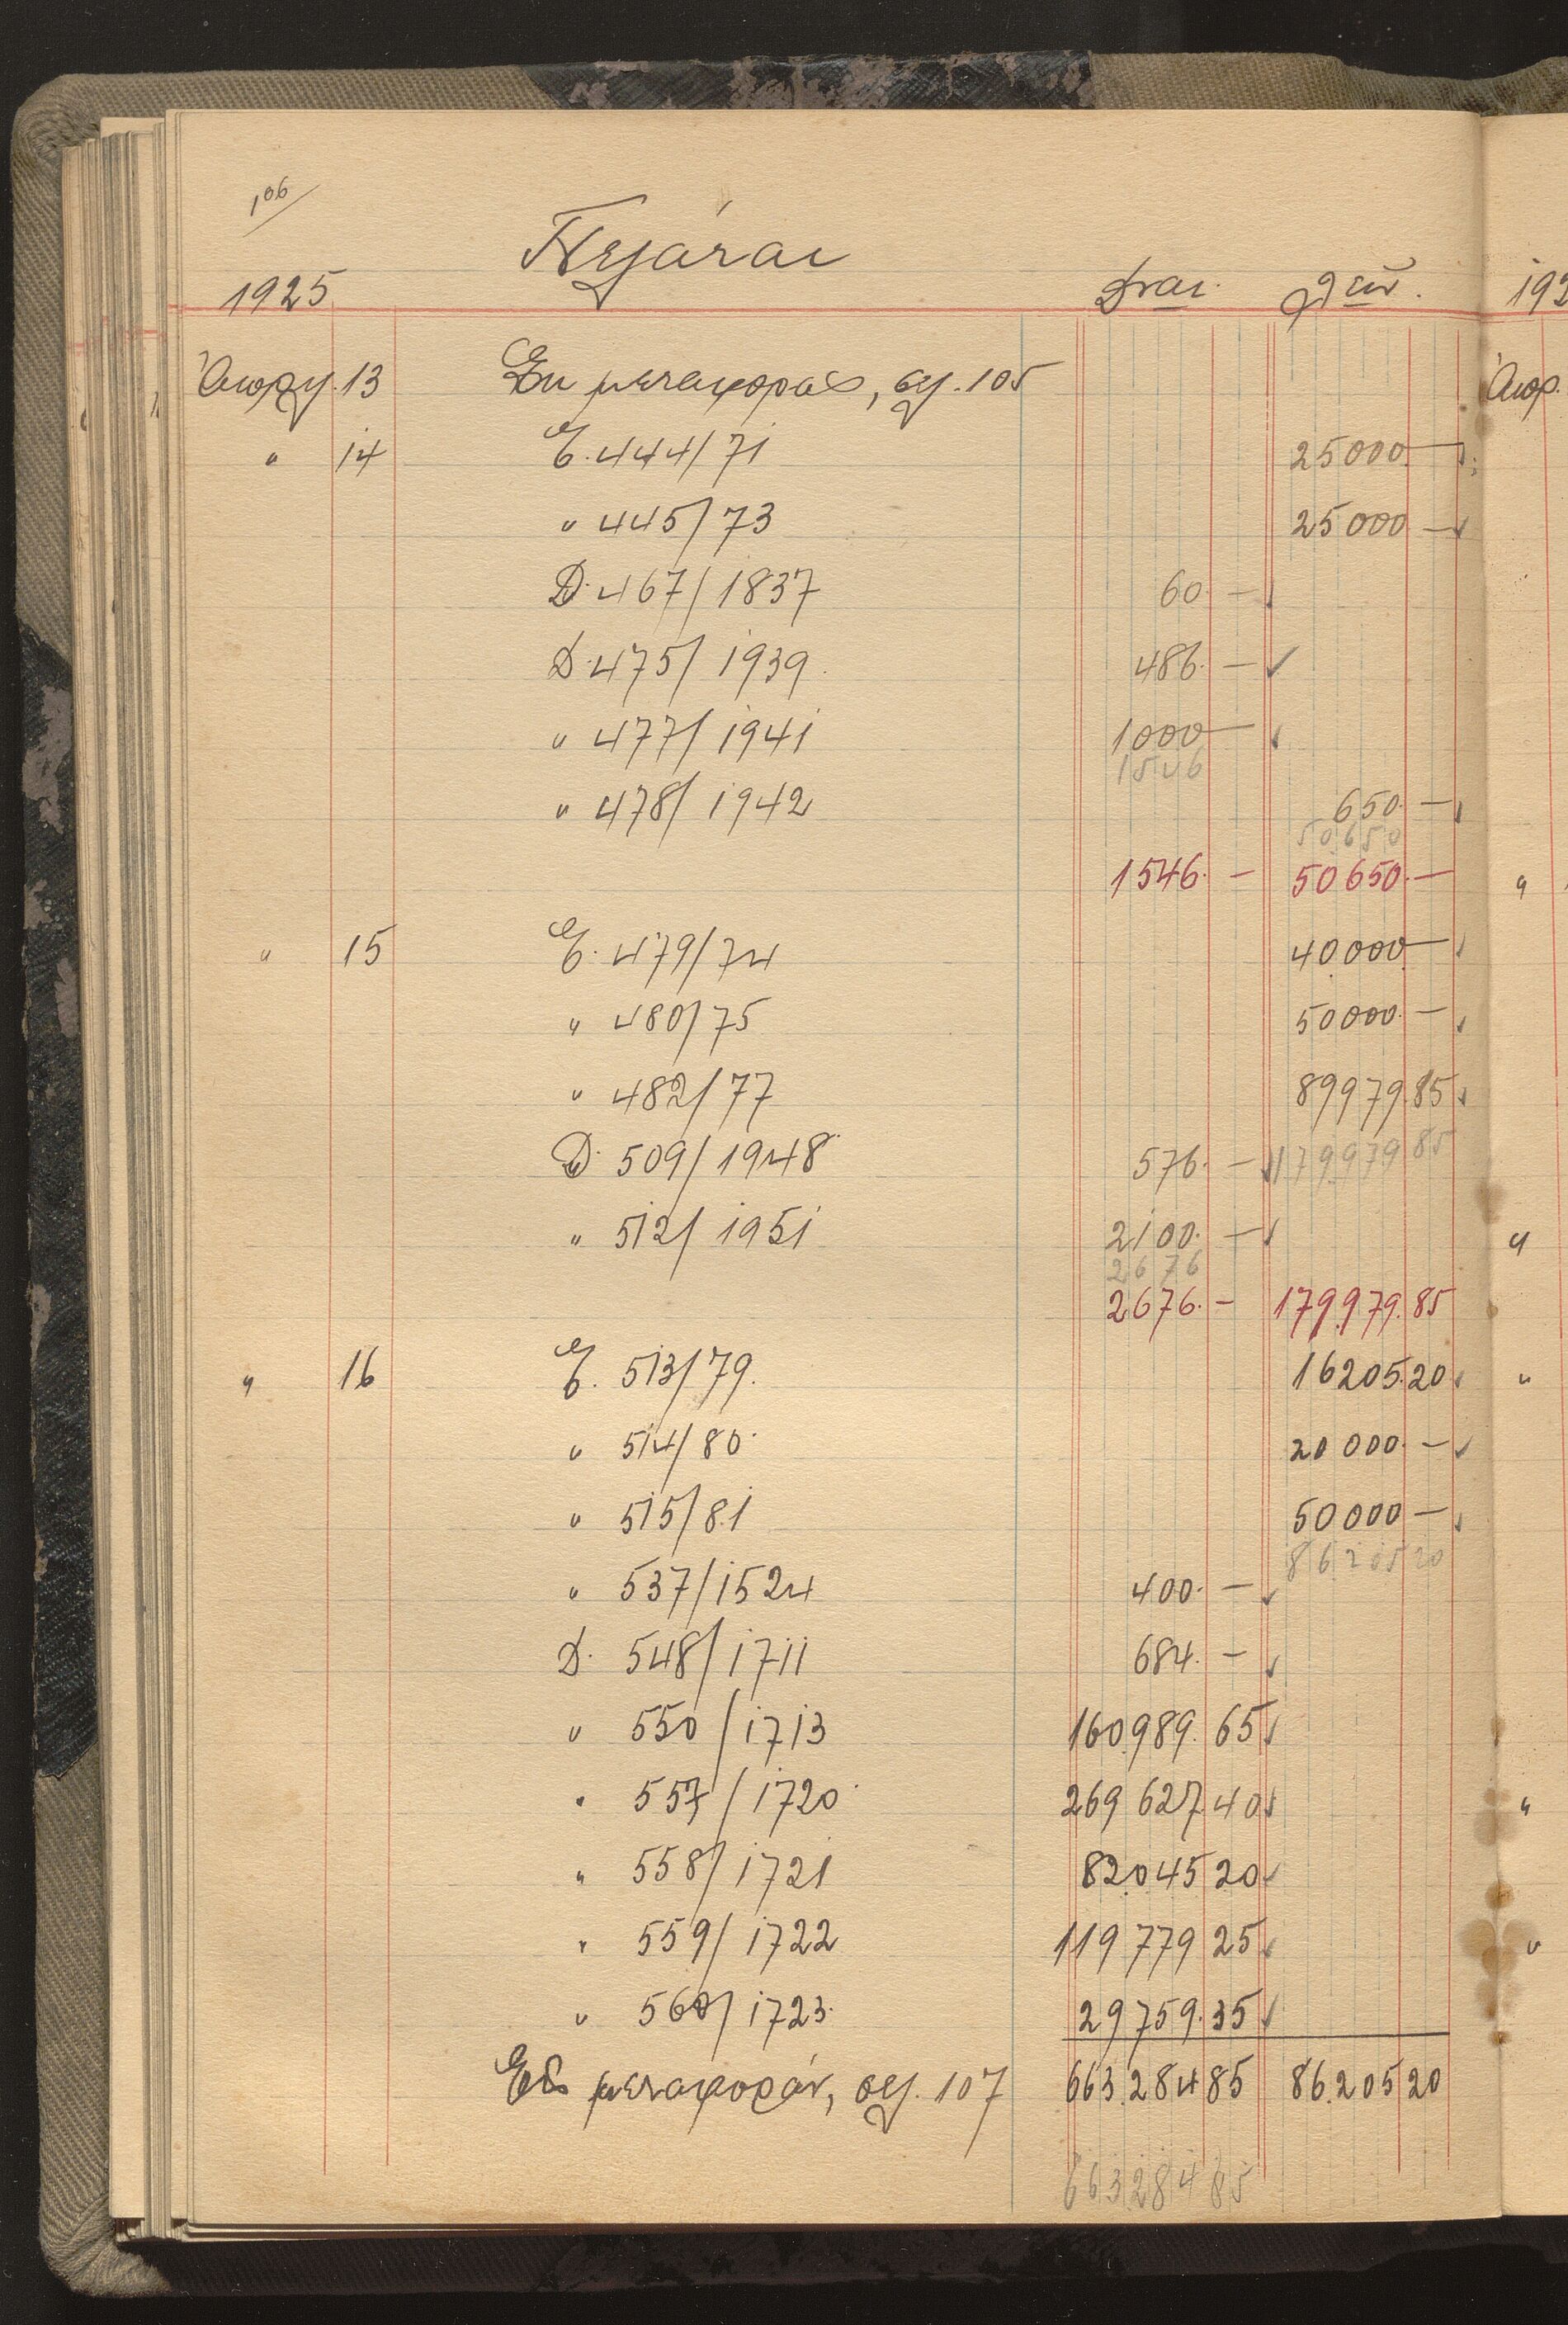 106
Πελάται
1925 Δοῦν. Λαβ.
Ἀπρίλ. 13 Ἐκ μεταφορᾶς, σελ. 105
" 14 Ε. 444/71 25000.—
" 445/73 25000 —
Δ. 467/1837 60. —
Δ. 475/1939 486. —
" 477/1941 1000 —
1546
" 478/1942 650. —
50650
1546. — 50650. —
" 15 Ε. 479/74 40.000 —
" 480/75 50000. —
" 482/77 89979.85
Δ. 509/1948 576. — 179979 85
" 512/1951 2100. —
2676
2676. — 179.979.85
" 16 Ε. 513/79. 16205.20
" 514/80. 20 000. —
" 515/81 50000 —
86205 20
" 537/1524 400. —
Δ. 548/1711 684. —
" 550/1713 160.989.65
" 557/1720 269 627 40
" 558/1721 82.045 20
" 559/1722 119 779 25
" 560/1723. 29759.35
Εἰς μεταφοράν, σελ. 107 663.284 85 86.205 20
663284 85